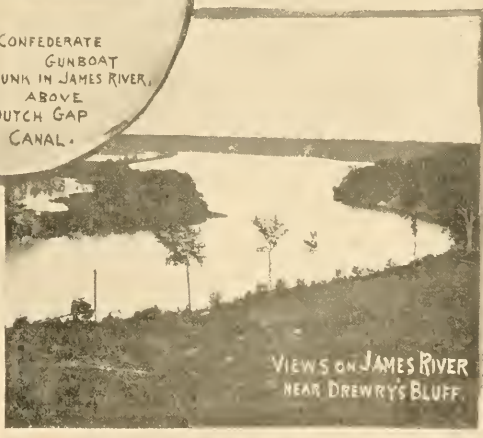 CONFEDERATE
GUNBOAT
UNK IN JAMES RIVER,
ABOVE
UTCH GAP
CANAL.
VIEWS ON JAMES RIVER
NEAR DREWRY'S BLUFF.